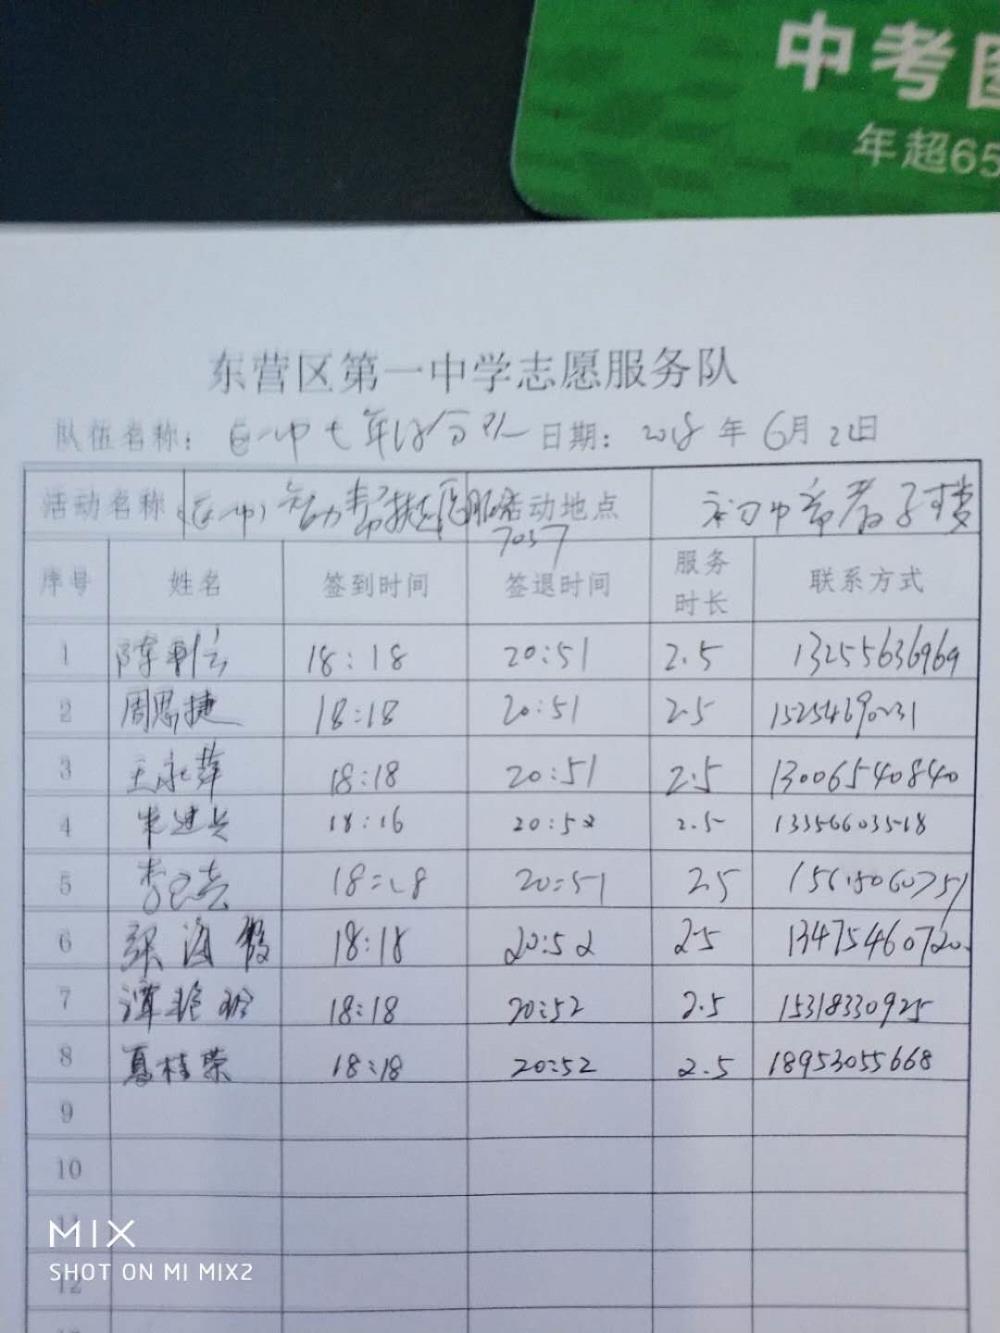 中考
年超65
东营区第一中学志愿服务队
队伍名称： 区一中七年 日期： 2018年6月21日
活动名称 （区一中） 活动地点
7057
序号 姓名 签到时间 签退时间 服务时长 联系方式
1 陈 18:18 20:51 2.5 13255636969
2 周思捷 18:18 20:51 2.5
3 王永萍 18:18 20:51 2.5 13006540840
4 朱建兵 18:16 20:52 2.5 13356603518
5 李 18:18 20:51 2.5
6 张海 18:18 20:52 2.5 13475460720
7 谭艳玲 18:18 20:52 2.5 15318330925
8 夏桂荣 18:18 20:52 2.5 18953055668
9
10
11
12
MIX
SHOT ON MI MIX2